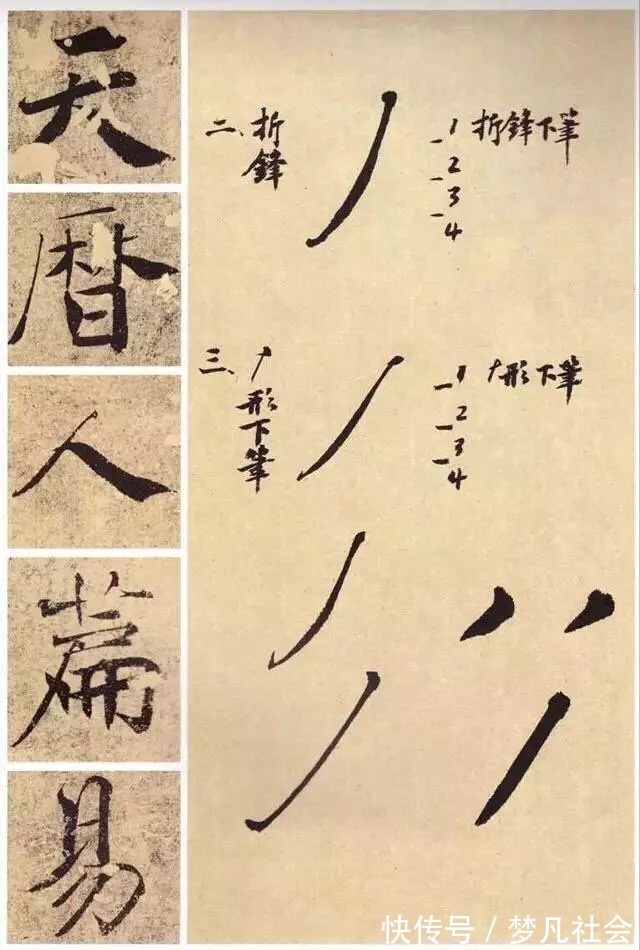 天
暦
人
篇
易
二、折鋒
1 折鋒下筆
2
3
4
三、丿形下筆
1 丿形下筆
2
3
4
快传号/梦凡社会